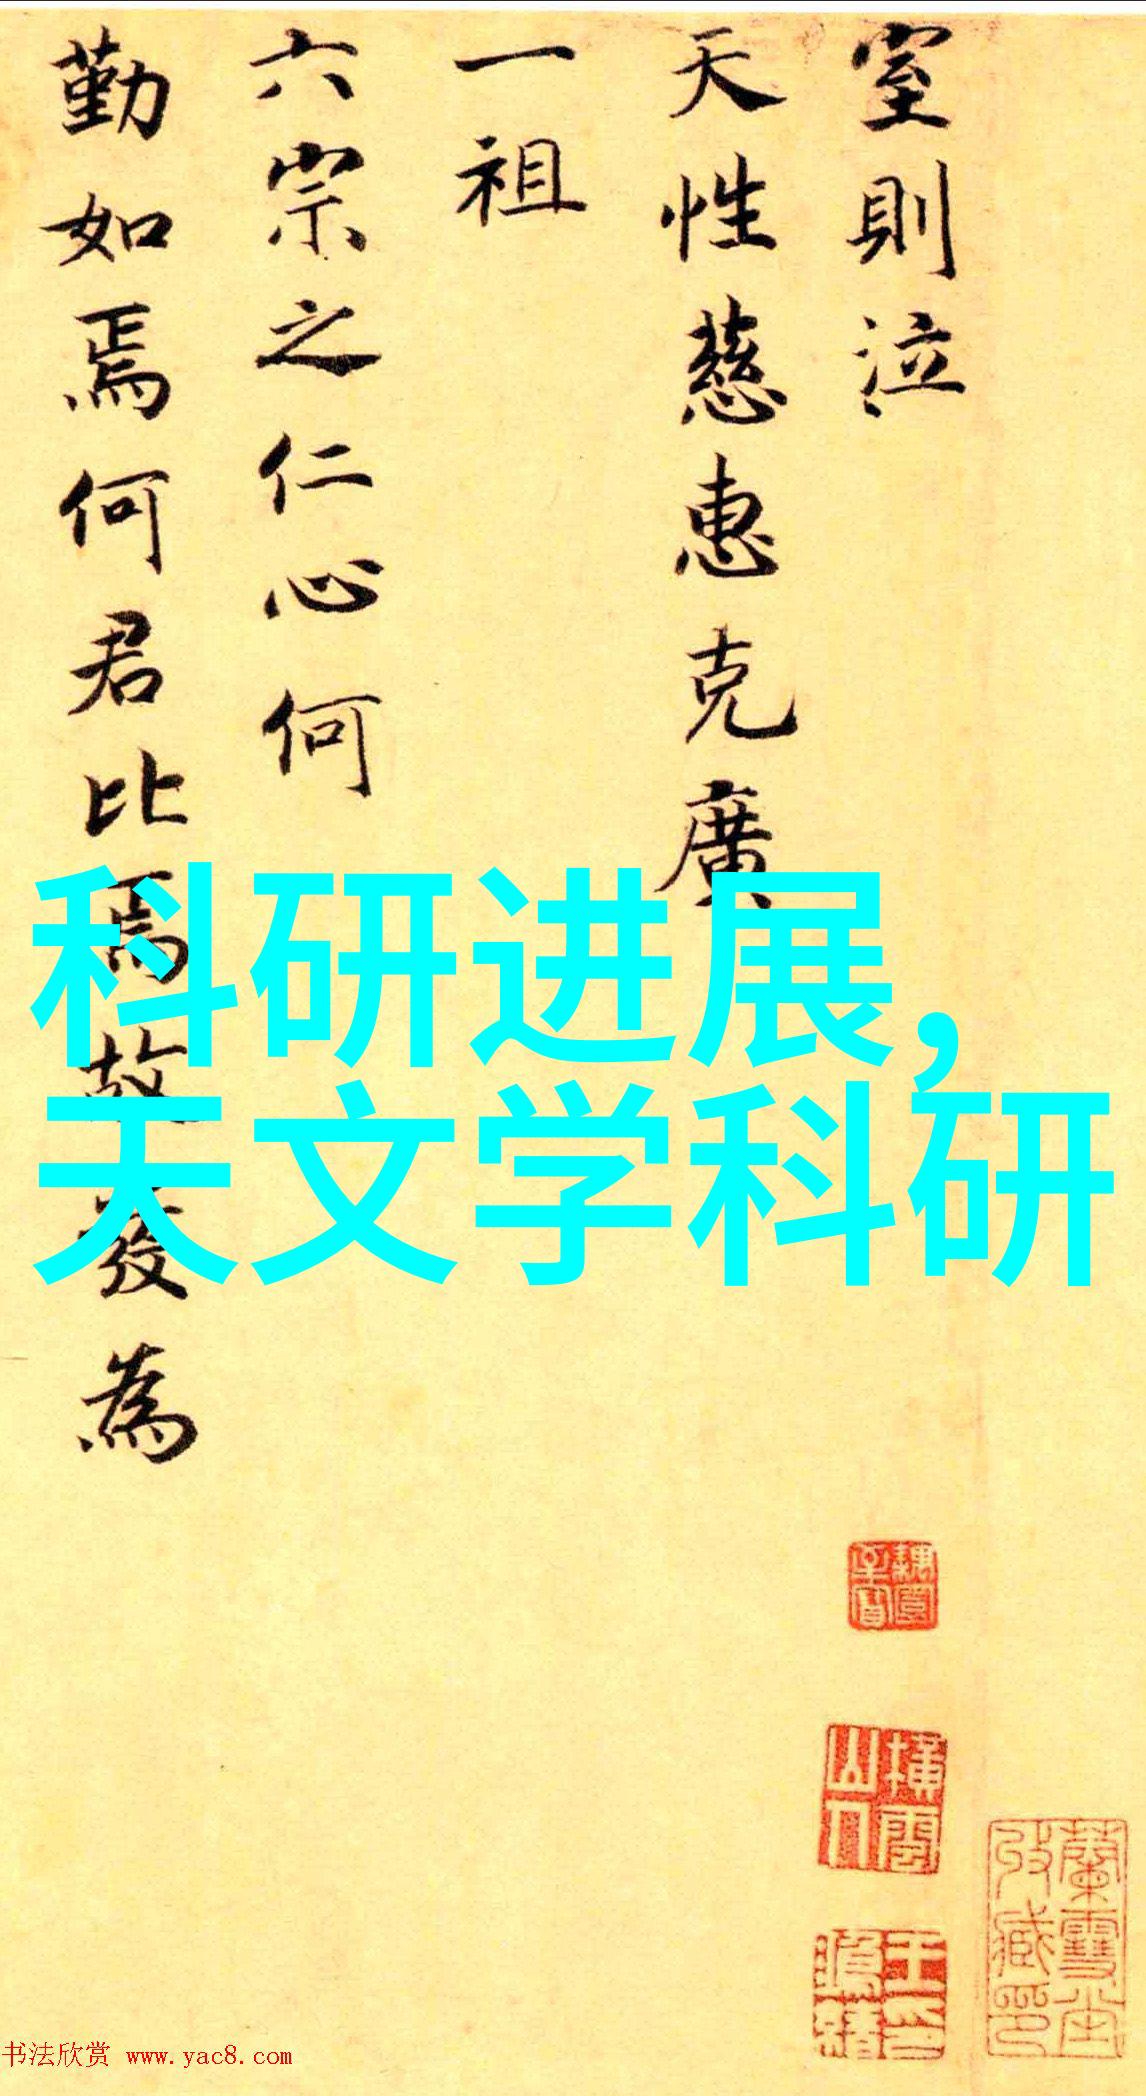 室則泣
天性慈惠克廣
一祖
六宗之仁心何
勤如焉何君比焉故發為
科研进展,
天文学科研
蘭雪堂
收藏印
书法欣赏 www.yac8.com